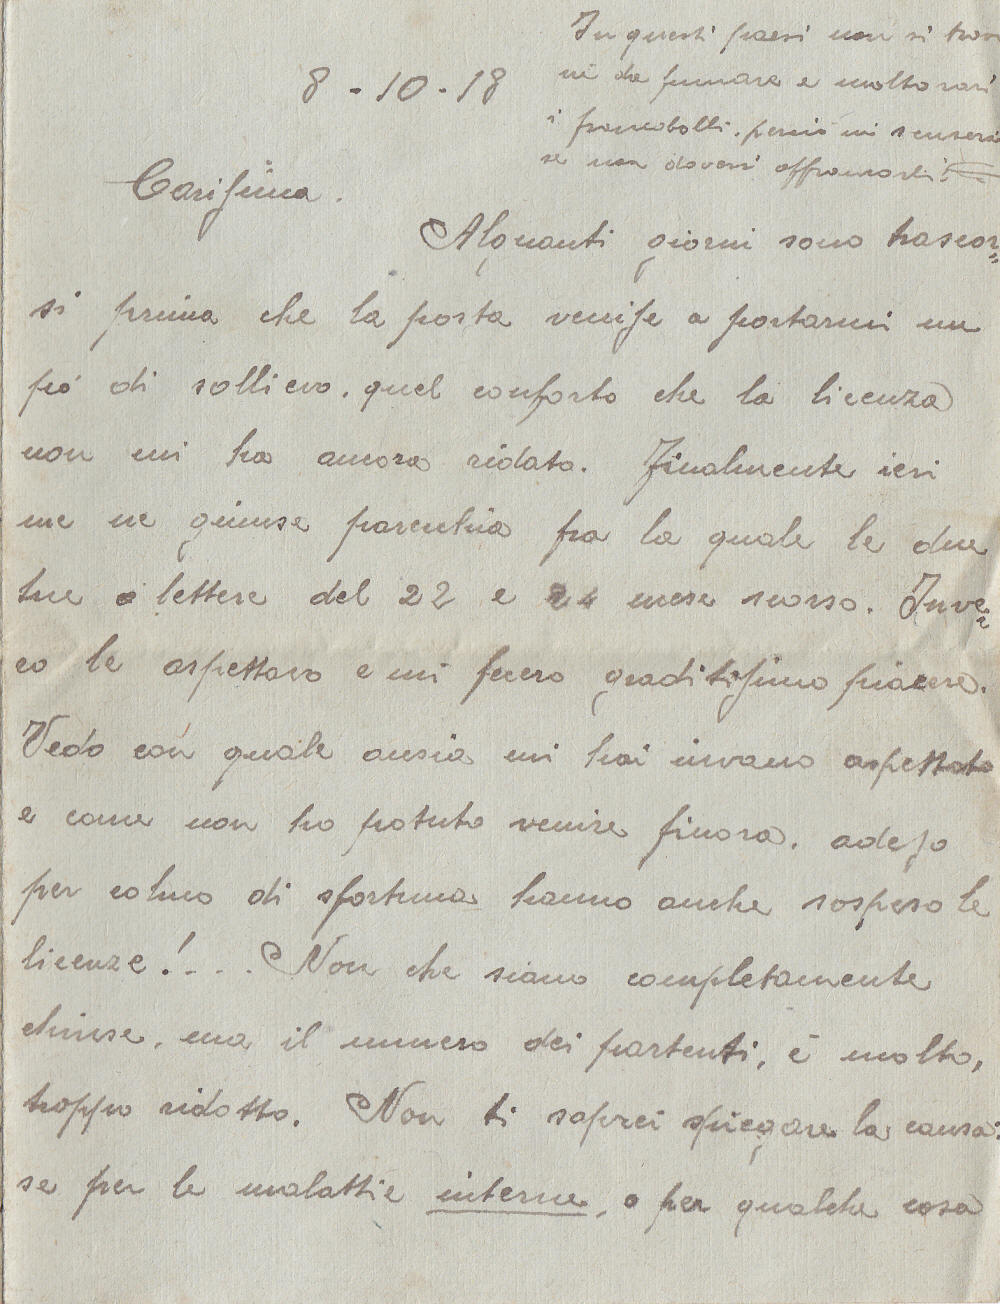 In questi paesi non si trova
nè da fumare e molto rari
i francobolli. perciò mi scuserai
se non dovessi affrancarti.
8 - 10 - 18
Carissima.
Alquanti giorni sono trascor=
si prima che la posta venisse a portarmi un
pó di sollievo, quel conforto che la licenza
non mi ha ancora ridato. Finalmente ieri
me ne giunse parecchia fra la quale le due
tue lettere del 22 e 24 mese scorso. Inve=
ro le aspettavo e mi fecero graditissimo piacere.
Vedo con quale ansia mi hai invano aspettato
e come non ho potuto venire finora, adesso
per colmo di sfortuna hanno anche sospeso le
licenze!.... Non che siano completamente
chiuse, ma il numero dei partenti, è molto,
troppo ridotto. Non ti saprei spiegare la causa:
se per le malattie interne, o per qualche cosa